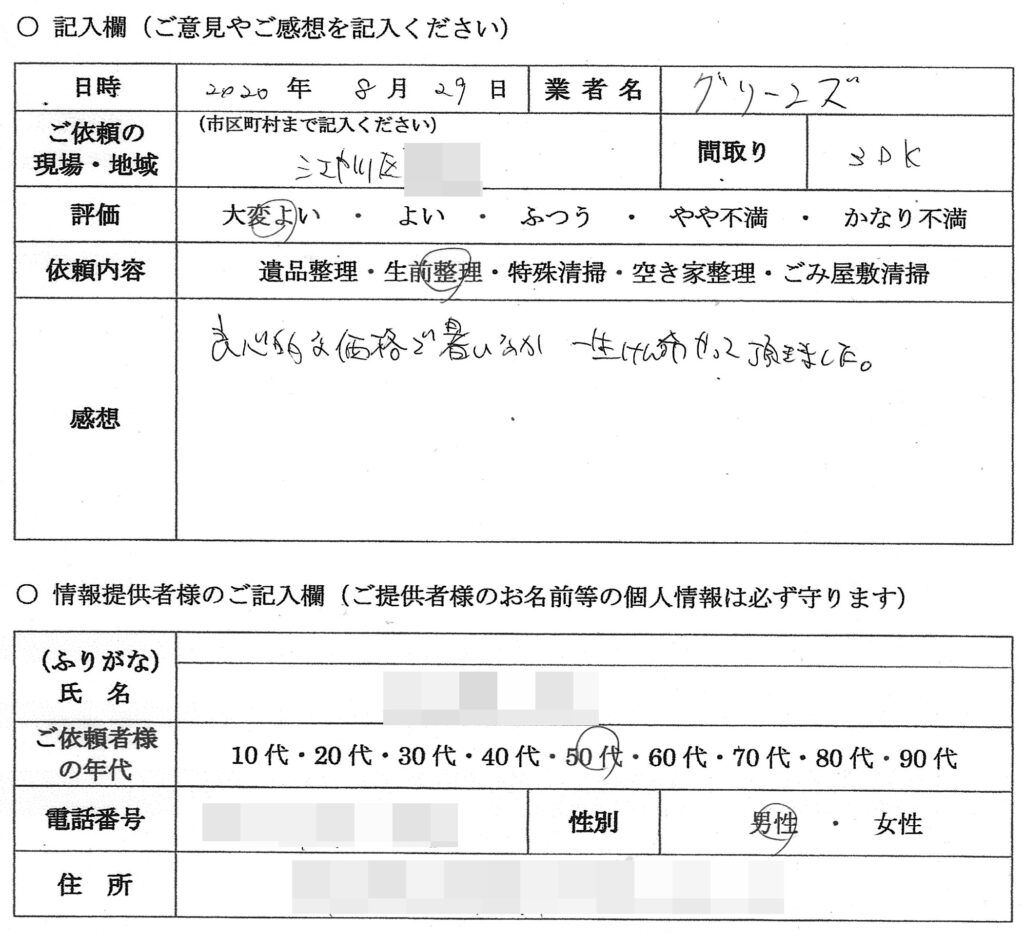 ○ 記入欄（ご意見やご感想を記入ください）
日時 2020 年 8 月 29 日 業者名 グリーンズ
ご依頼の現場・地域 （市区町村まで記入ください） 江戸川区 間取り 3DK
評価 大変よい ・ よい ・ ふつう ・ やや不満 ・ かなり不満
依頼内容 遺品整理・生前整理・特殊清掃・空き家整理・ごみ屋敷清掃
感想 良心的な価格で暑いなか 一生けん命やって頂きました。
○ 情報提供者様のご記入欄（ご提供者様のお名前等の個人情報は必ず守ります）
（ふりがな）
氏 名
ご依頼者様の年代 10代・20代・30代・40代・50代・60代・70代・80代・90代
電話番号 性別 男性 ・ 女性
住 所